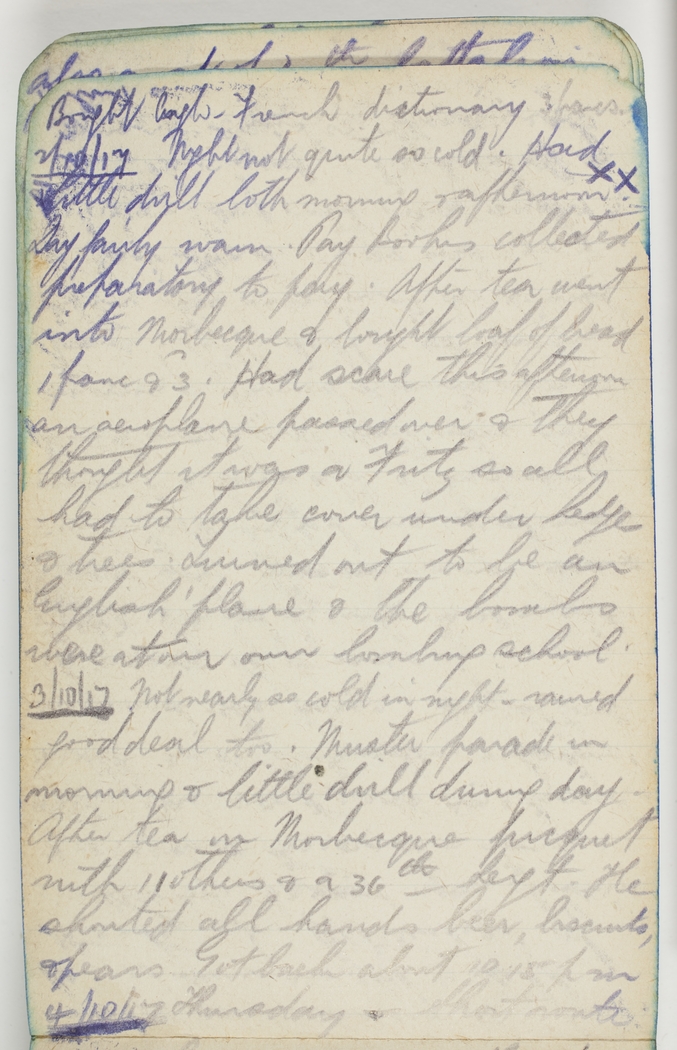 Bought Engl-French dictionary 3 francs.
2/10/17 Night not quite so cold. Had
xx
little drill both morning & afternoon.
Day fairly warm. Pay Books collected
preparatory to pay. After tea went
into Morbecque & bought loaf of bread
1 franc & 3. Had scare this afternoon
an aeroplane passed over & they
thought it was a Fritz so all
had to take cover under hedges
& trees. Turned out to be an
English 'plane & the bombs
were at our own bombing school.
3/10/17 Not nearly so cold in night - rained
good deal too. Muster parade in
morning & little drill during day.
After tea on Morbecque picquet
with 11 others & a 36th Sergt. He
shouted all hands beer, biscuits,
& pears. Got back about 10 45 pm
4/10/17 Thursday short route